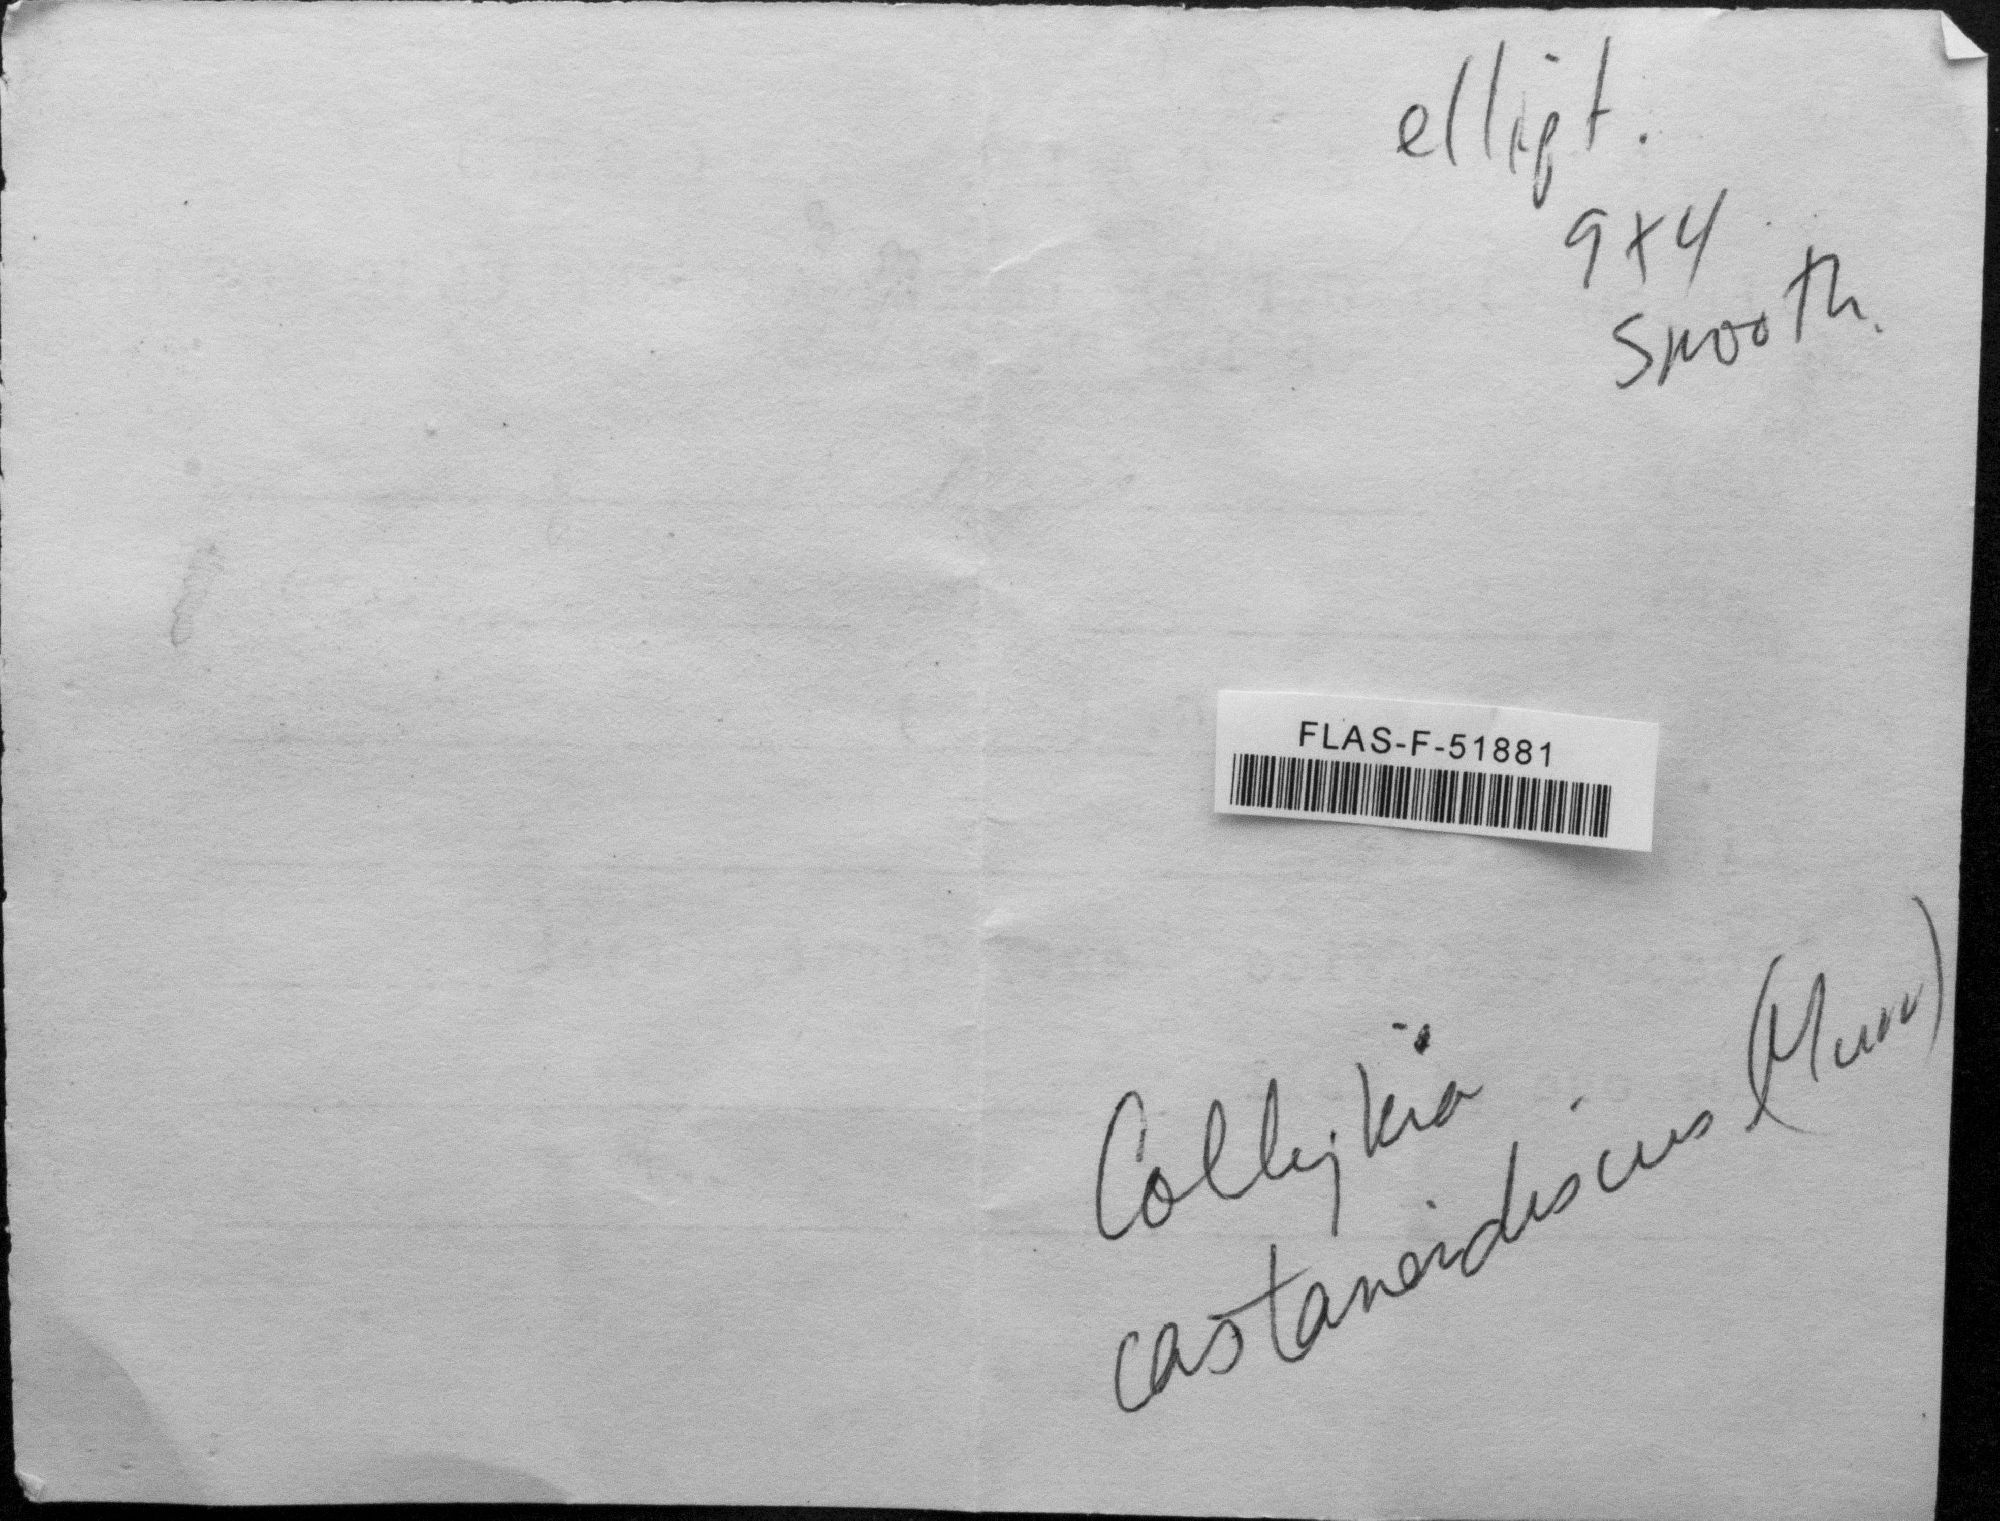 ellipt.
9x4
smooth.
FLAS-F-51881
Collybia
castaneidiscus (Murr)